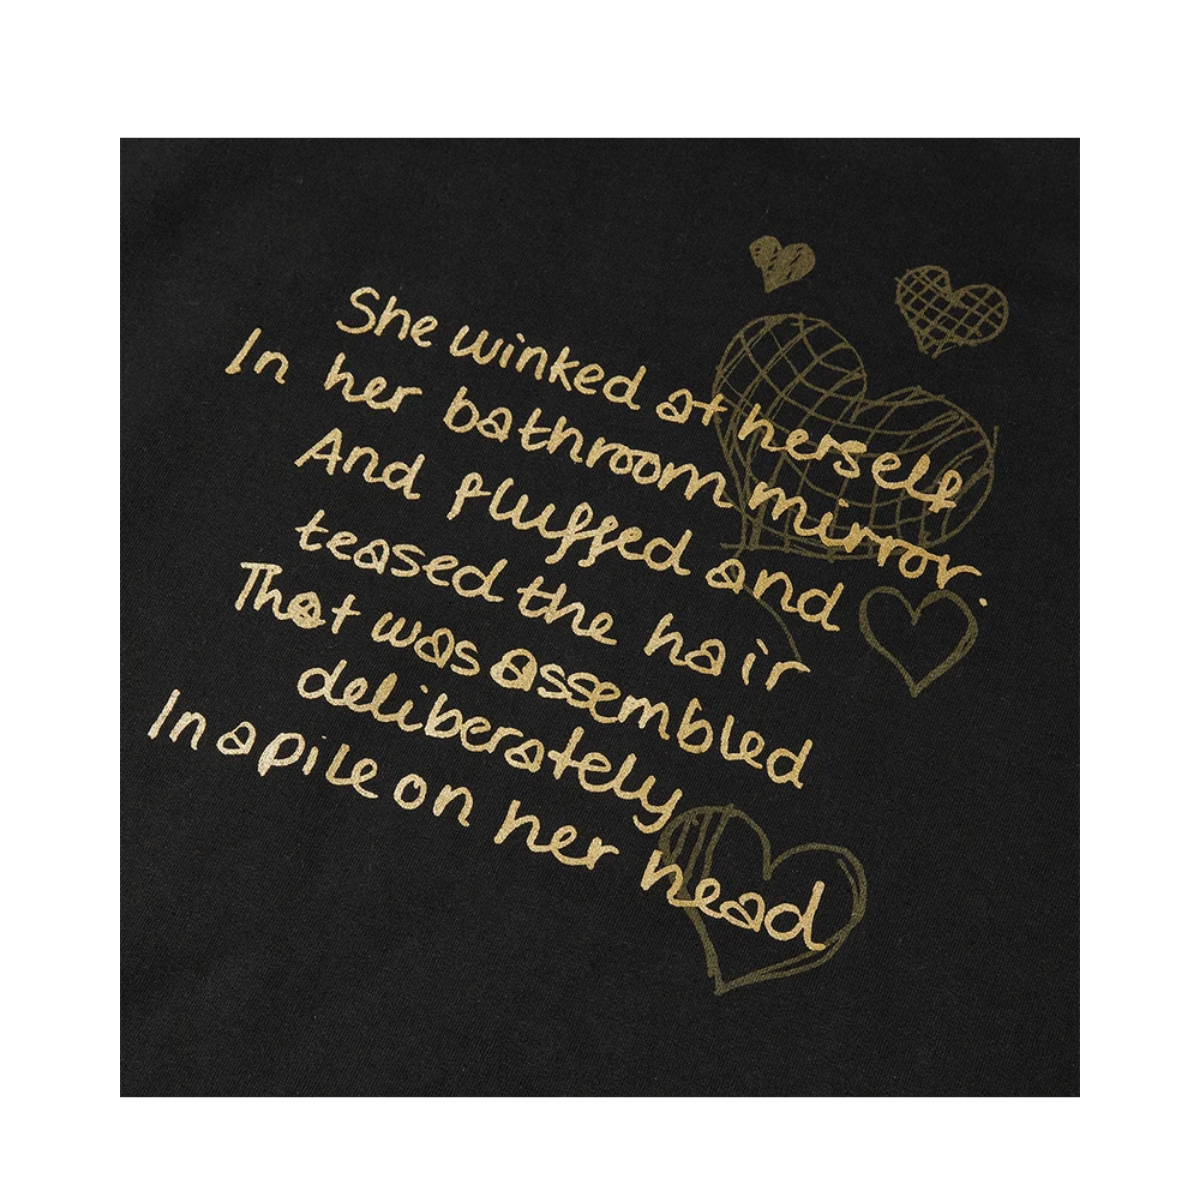 She winked at herself
In her bathroom mirror.
And fluffed and
teased the hair
That was assembled
deliberately
In a pile on her head